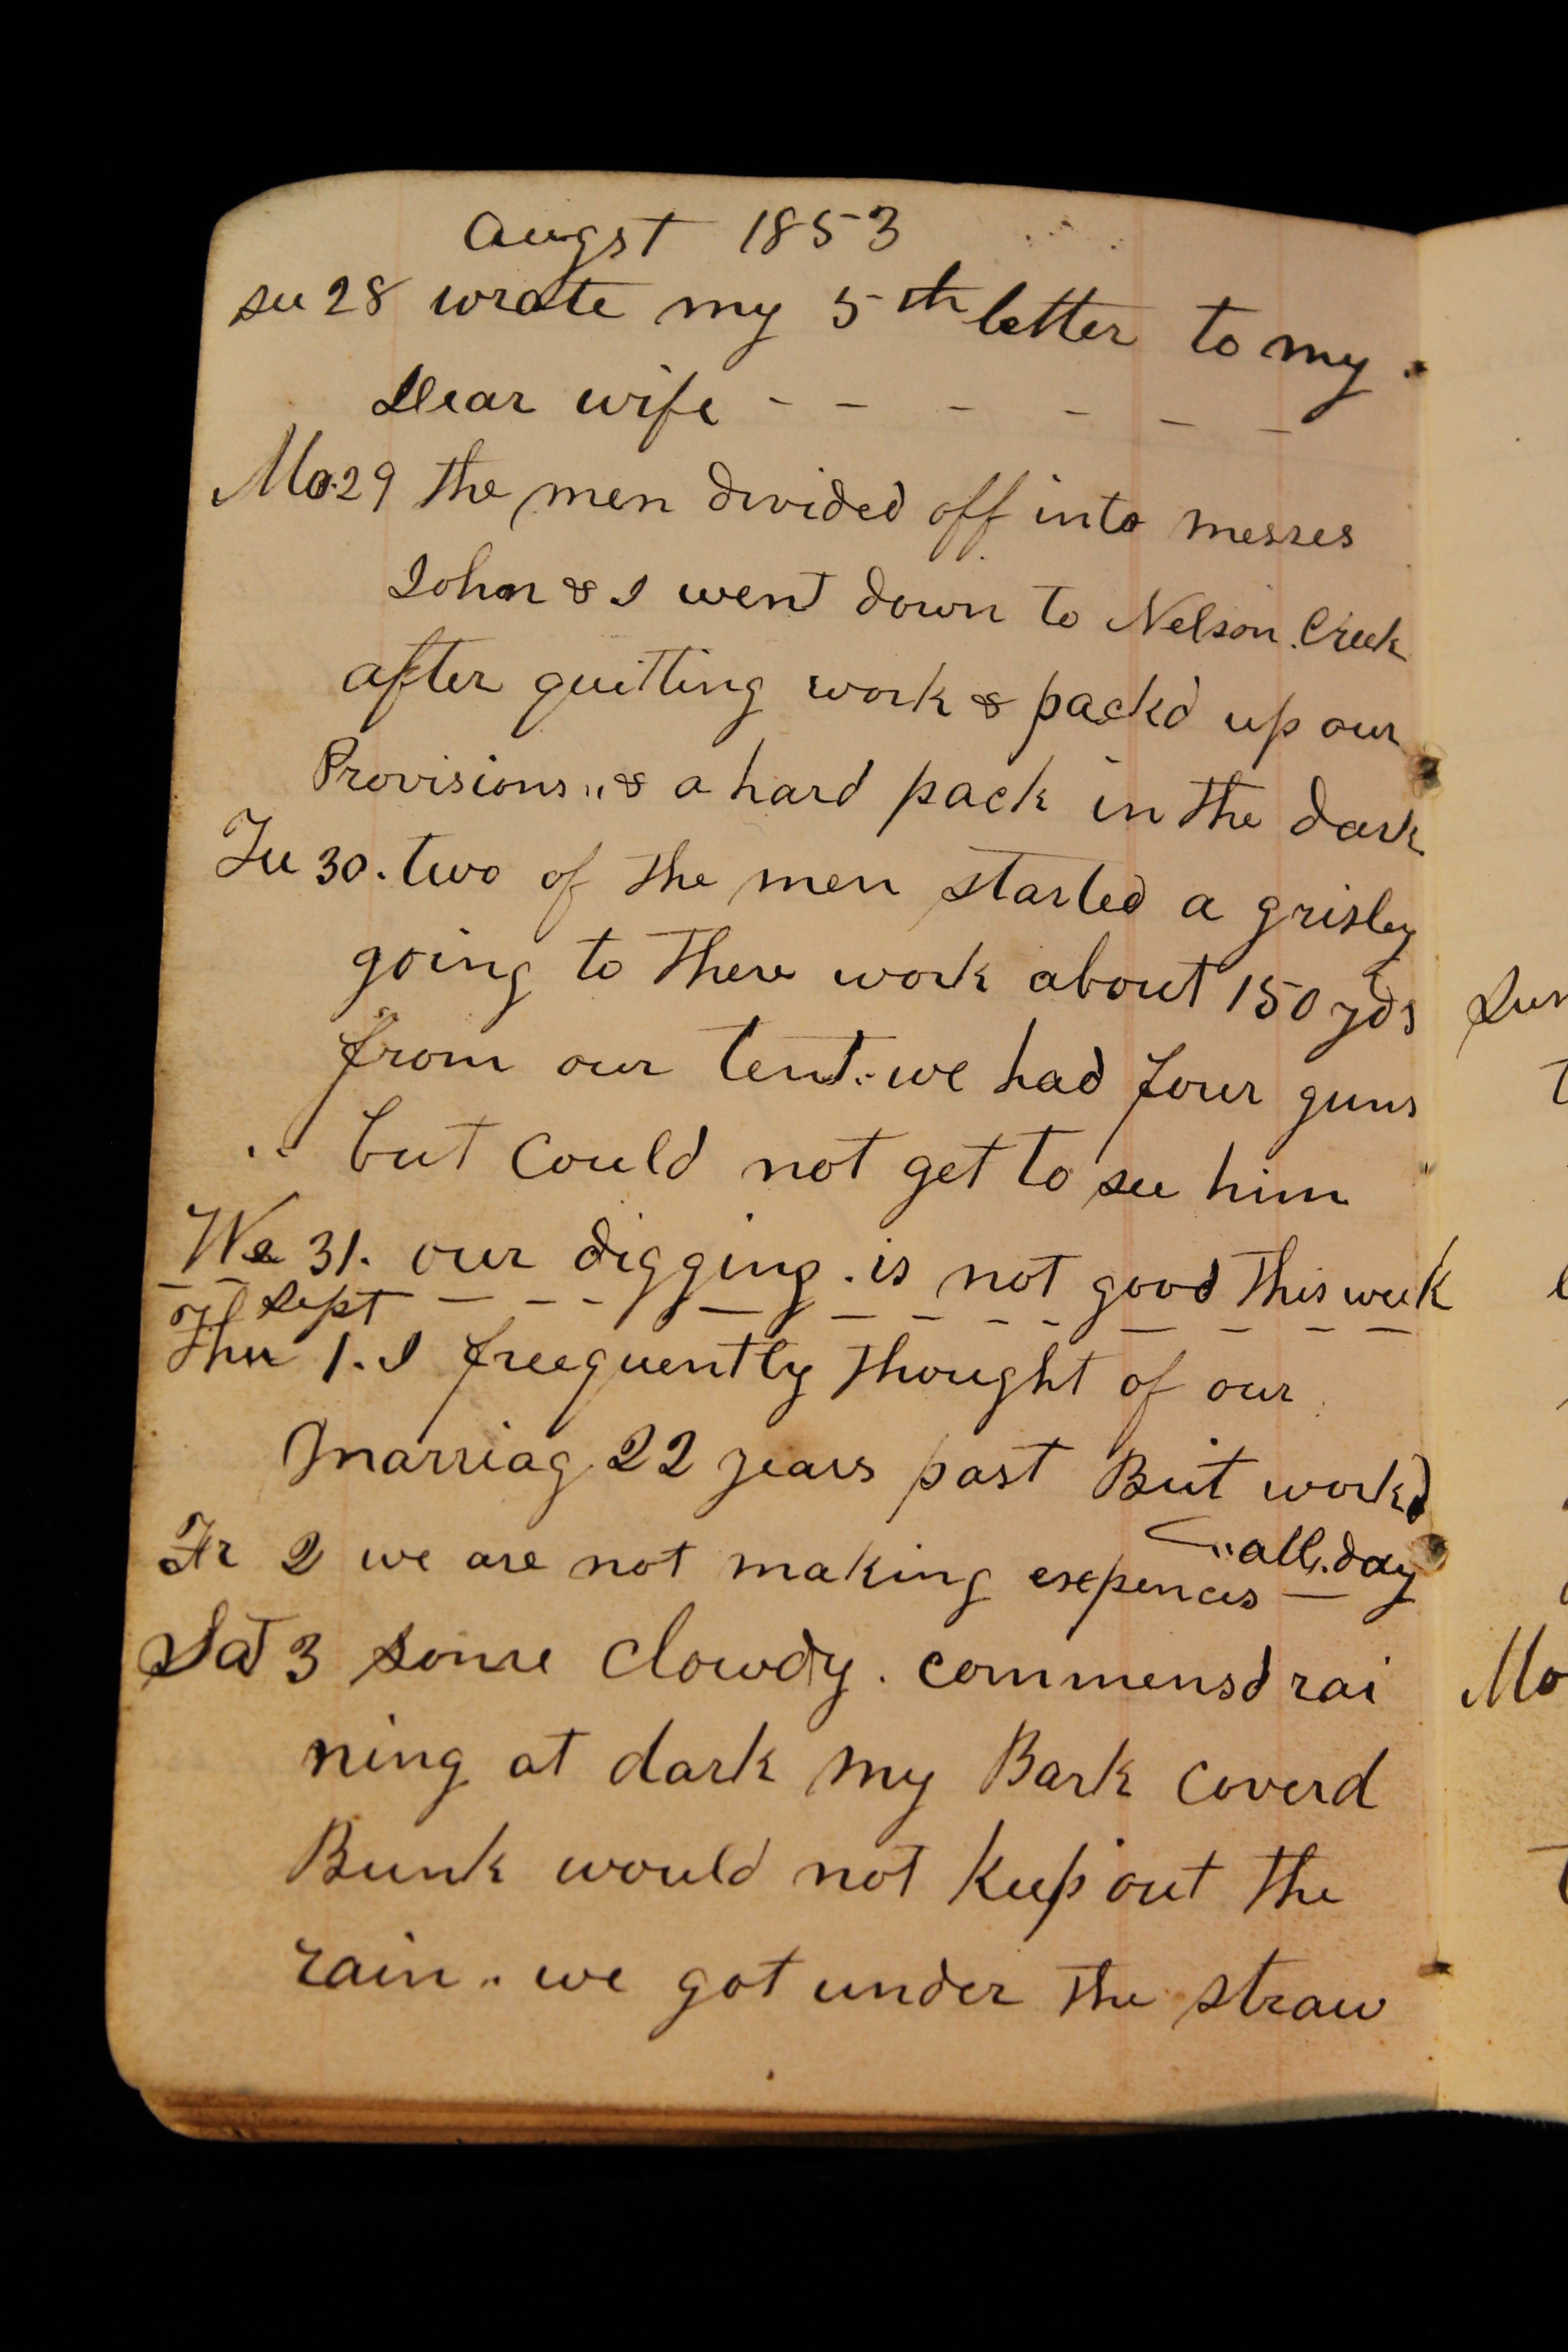 Augst 1853
su 28 wrote my 5th letter to my
Dear wife - - - - - -
Mo. 29 the men divided off into messes
John & I went down to Nelson Creek
after quitting work & pack'd up our
Provisions,, & a hard pack in the dark
Tu 30. two of the men started a grisley
going to There work about 150 yds
from our tent.. we had four guns
.. but could not get to see him
We 31. our digging. is not good this week
Sept
Thu 1. I freequently thought of our
Marriag 22 years past But work'd
.. all. day
Fr 2 we are not making expences —
Sat 3 some Clowdy. commensd rai
ning at dark my Bark Coverd
Bunk would not keep out the
rain.. we got under the straw
Sun
Mo